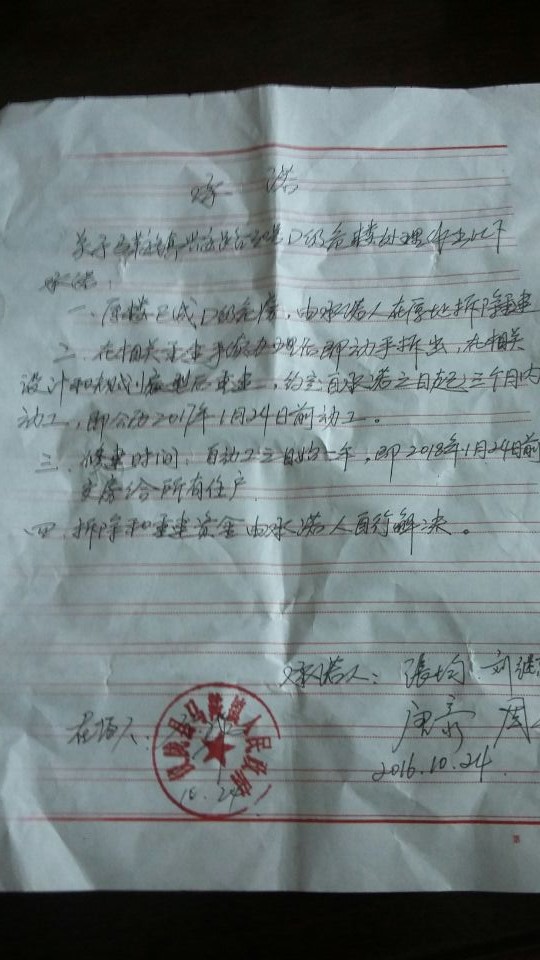 承诺
关于 D级危楼处理作出以下
承诺:
一、原楼已成D级危房,由承诺人在原地拆除重建
二、在相关 手续办理后即动手拆出,在相关
设计和规划 后重建,约定自承诺之日起三个月内
动工,即公历2017年1月24日前动工。
三、修建时间:自动工之日始一年,即2018年1月24日前
交房给所有住户
四、拆除和重建资金由承诺人自行解决。
承诺人:张均 刘继
在场人:
唐 周
2016.10.24
县马 镇人民政府
10.24
第